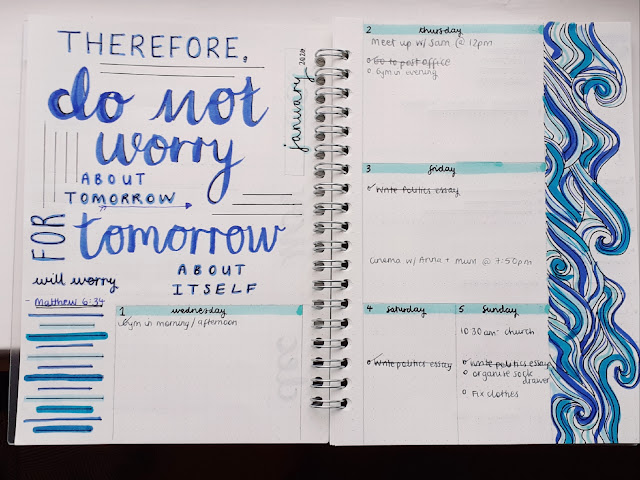 THEREFORE,
do not
worry
ABOUT
TOMORROW
FOR tomorrow
will worry
ABOUT
ITSELF
- Matthew 6:34
january 2020
1
wednesday
Gym in morning / afternoon
2
thursday
Meet up w/ Sam @ 12pm
Go to post office
Gym in evening
3
friday
Write politics essay
Cinema w/ Anna + mum @ 7:50pm
4
saturday
Write politics essay
5
sunday
10 30 am church
Write politics essay
organise sock
drawer
Fix clothes